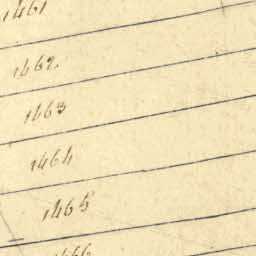 1461
1462.
1463
1464
1465
1466